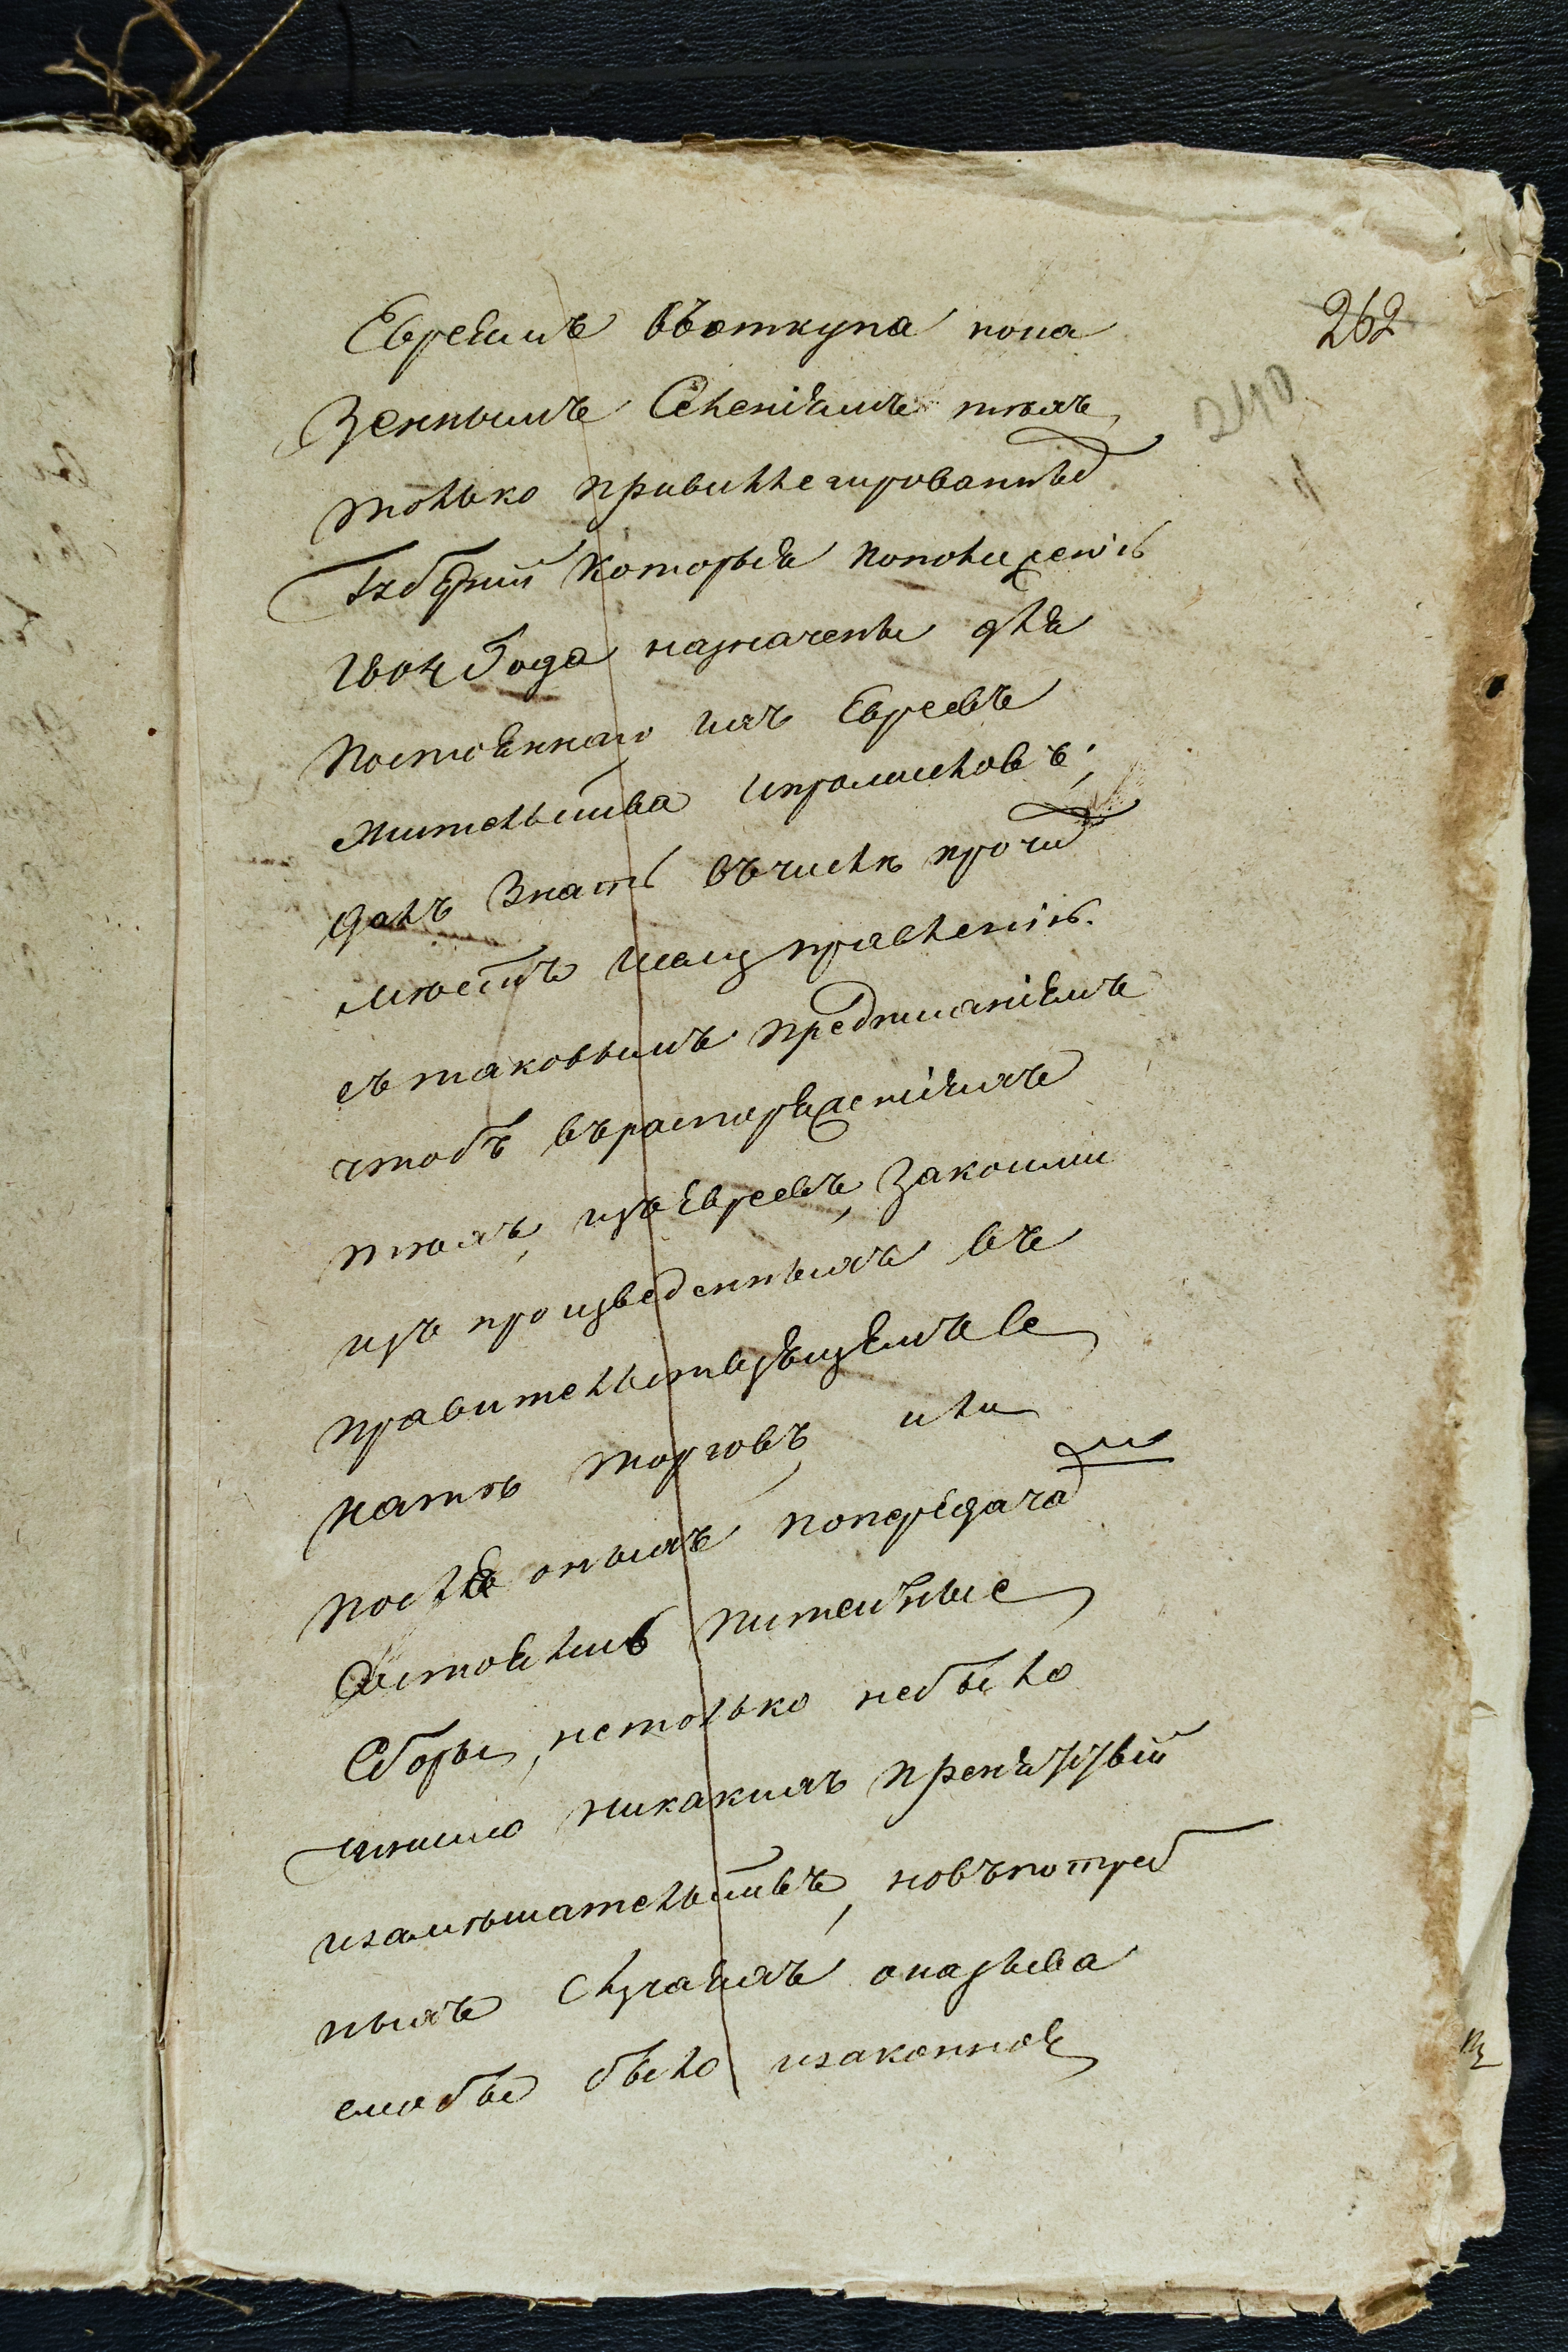 262
240
Евреямъ въоткупа пона
зеннымъ Селеніямъ тѣхъ
только привиллегированныхъ
Губерній Которыя Поположенію
1804 Года назначены для
Постояннаго ихъ Евреевъ
жительства ипромысловъ;
далъ Знать въчислѣ прочихъ
мѣстъ исему правленію.
съ таковымъ предписаніемъ
чтобъ въраспоряженіяхъ
тѣхъ изъЕвреевъ, Закоими
изъ произведенныхъ въ
правительствующемъ Се
натѣ торговъ, или
послѣ оныхъ попередачамъ
Состоялись питейные
Сборы, нетолько небыло
чинимо никакихъ препятствій
изамѣшательствъ, новъпотреб
ныхъ Случаяхъ оказыва
емо бы было изаконное